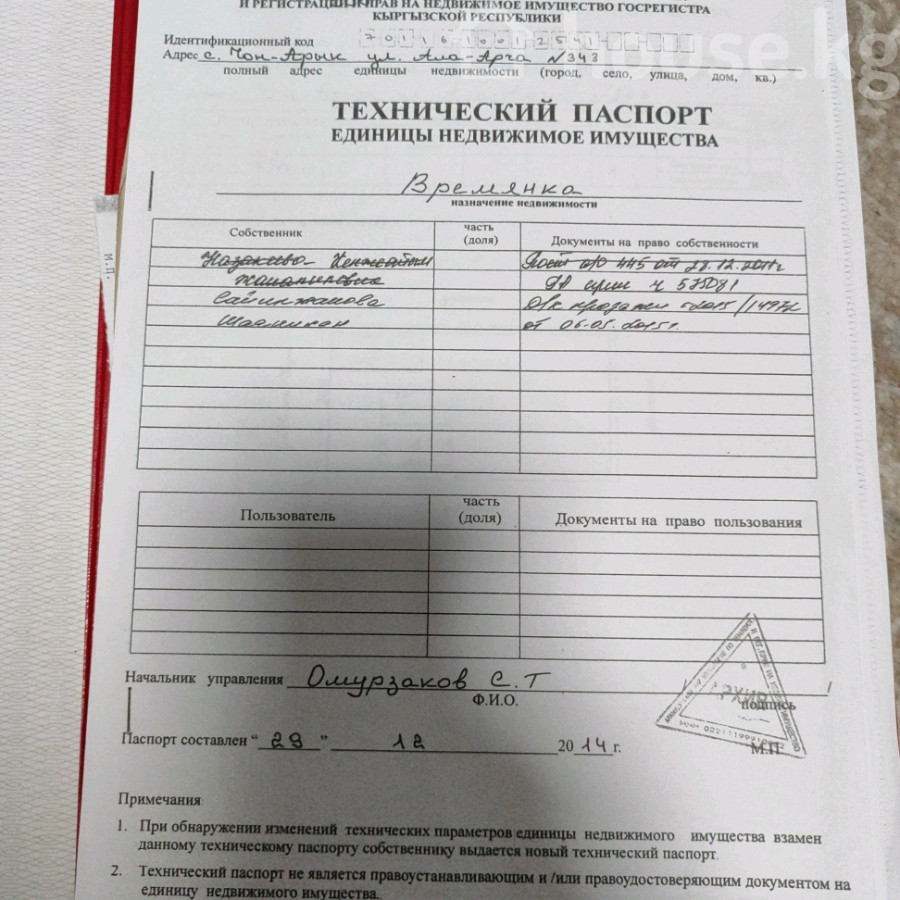 И РЕГИСТРАЦИИ ПРАВ НА НЕДВИЖИМОЕ ИМУЩЕСТВО ГОСРЕГИСТРА
КЫРГЫЗСКОЙ РЕСПУБЛИКИ
house.kg
Идентификационный код
Адрес с. Чон-Арык ул. Ала-Арча N343
полный адрес единицы недвижимости (город, село, улица, дом, кв.)
ТЕХНИЧЕСКИЙ ПАСПОРТ
ЕДИНИЦЫ НЕДВИЖИМОЕ ИМУЩЕСТВА
Времянка
назначение недвижимости
Собственник часть (доля) Документы на право собственности
445 от 28.12.
Сайинжанова продажи
от 06.05.2015г.
Пользователь часть (доля) Документы на право пользования
М.П.
Начальник управления Омурзаков С.Т
Ф.И.О. подпись
АРХИВ
Паспорт составлен “29” 12 2014 г.
М.П.
Примечания
1. При обнаружении изменений технических параметров единицы недвижимого имущества взамен
данному техническому паспорту собственнику выдается новый технический паспорт.
2. Технический паспорт не является правоустанавливающим и /или правоудостоверяющим документом на
единицу недвижимого имущества.